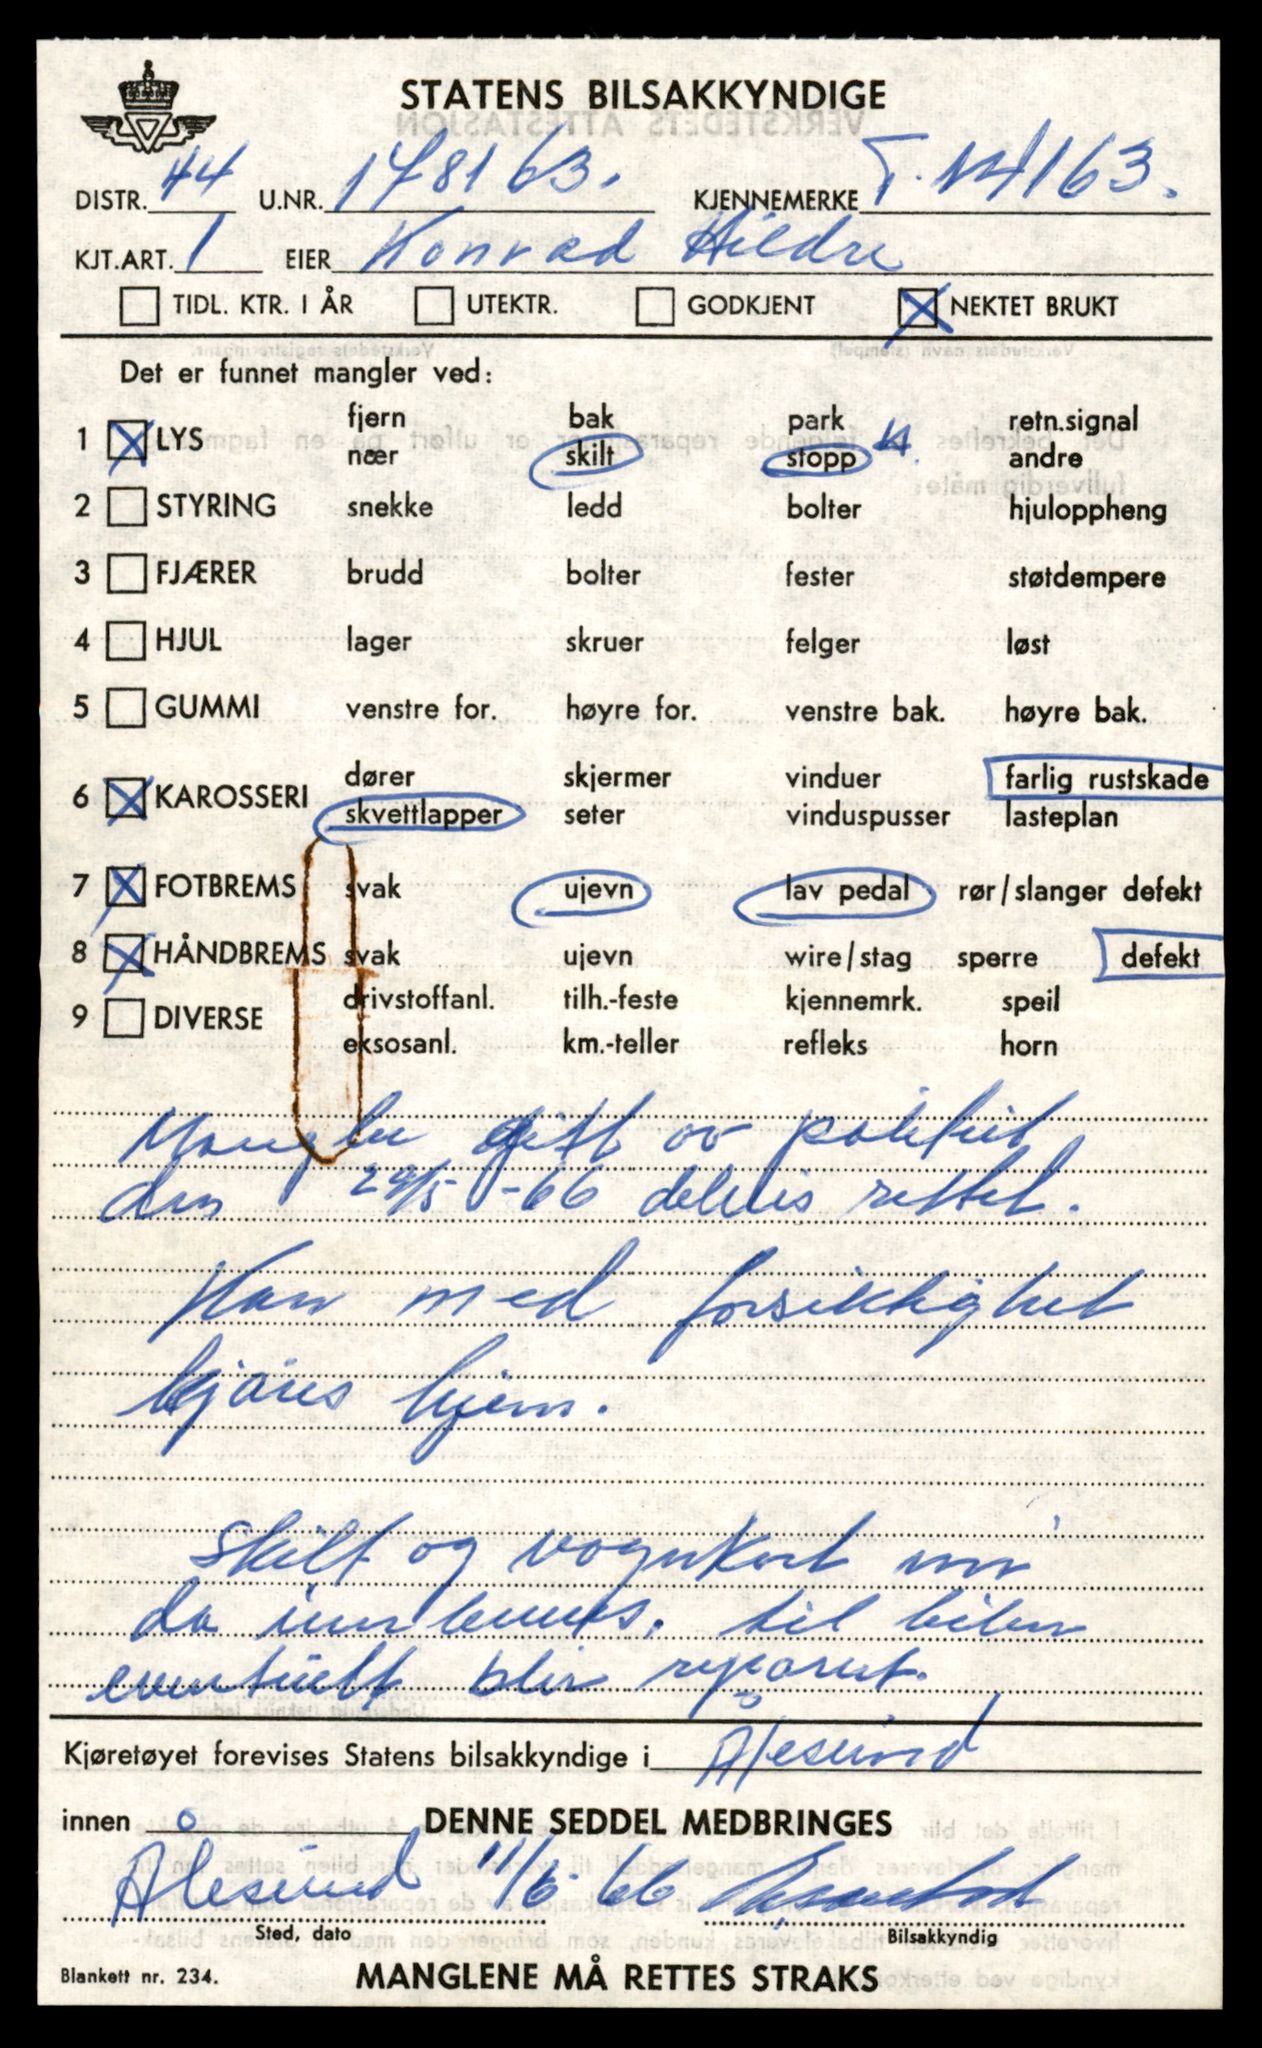 STATENS BILSAKKYNDIGE
DISTR. 44 U.NR. 178163. KJENNEMERKE T. 14163.
KJT.ART. 1 EIER Konrad Hildre
TIDL. KTR. I ÅR UTEKTR. GODKJENT NEKTET BRUKT
Det er funnet mangler ved:
fjern bak park retn.signal
1 LYS
nær skilt stopp andre
2 STYRING snekke ledd bolter hjuloppheng
3 FJÆRER brudd bolter fester støtdempere
4 HJUL lager skruer felger løst
5 GUMMI venstre for. høyre for. venstre bak. høyre bak.
dører skjermer vinduer farlig rustskade
6 KAROSSERI
skvettlapper seter vinduspusser lasteplan
7 FOTBREMS svak ujevn lav pedal rør/slanger defekt
8 HÅNDBREMS svak ujevn wire/stag sperre defekt
drivstoffanl. tilh.-feste kjennemrk. speil
9 DIVERSE
eksosanl. km.-teller refleks horn
Mangler gitt av politiet
den 24/5-66 delvis rettet.
Kan med forsiktighet
kjøres hjem.
Skilt og vognkort må
da innleveres. til bilen
eventuelt blir reparert.
Kjøretøyet forevises Statens bilsakkyndige i Ålesund
innen DENNE SEDDEL MEDBRINGES
Ålesund 11/6-66
Sted, dato Bilsakkyndig
Blankett nr. 234. MANGLENE MÅ RETTES STRAKS